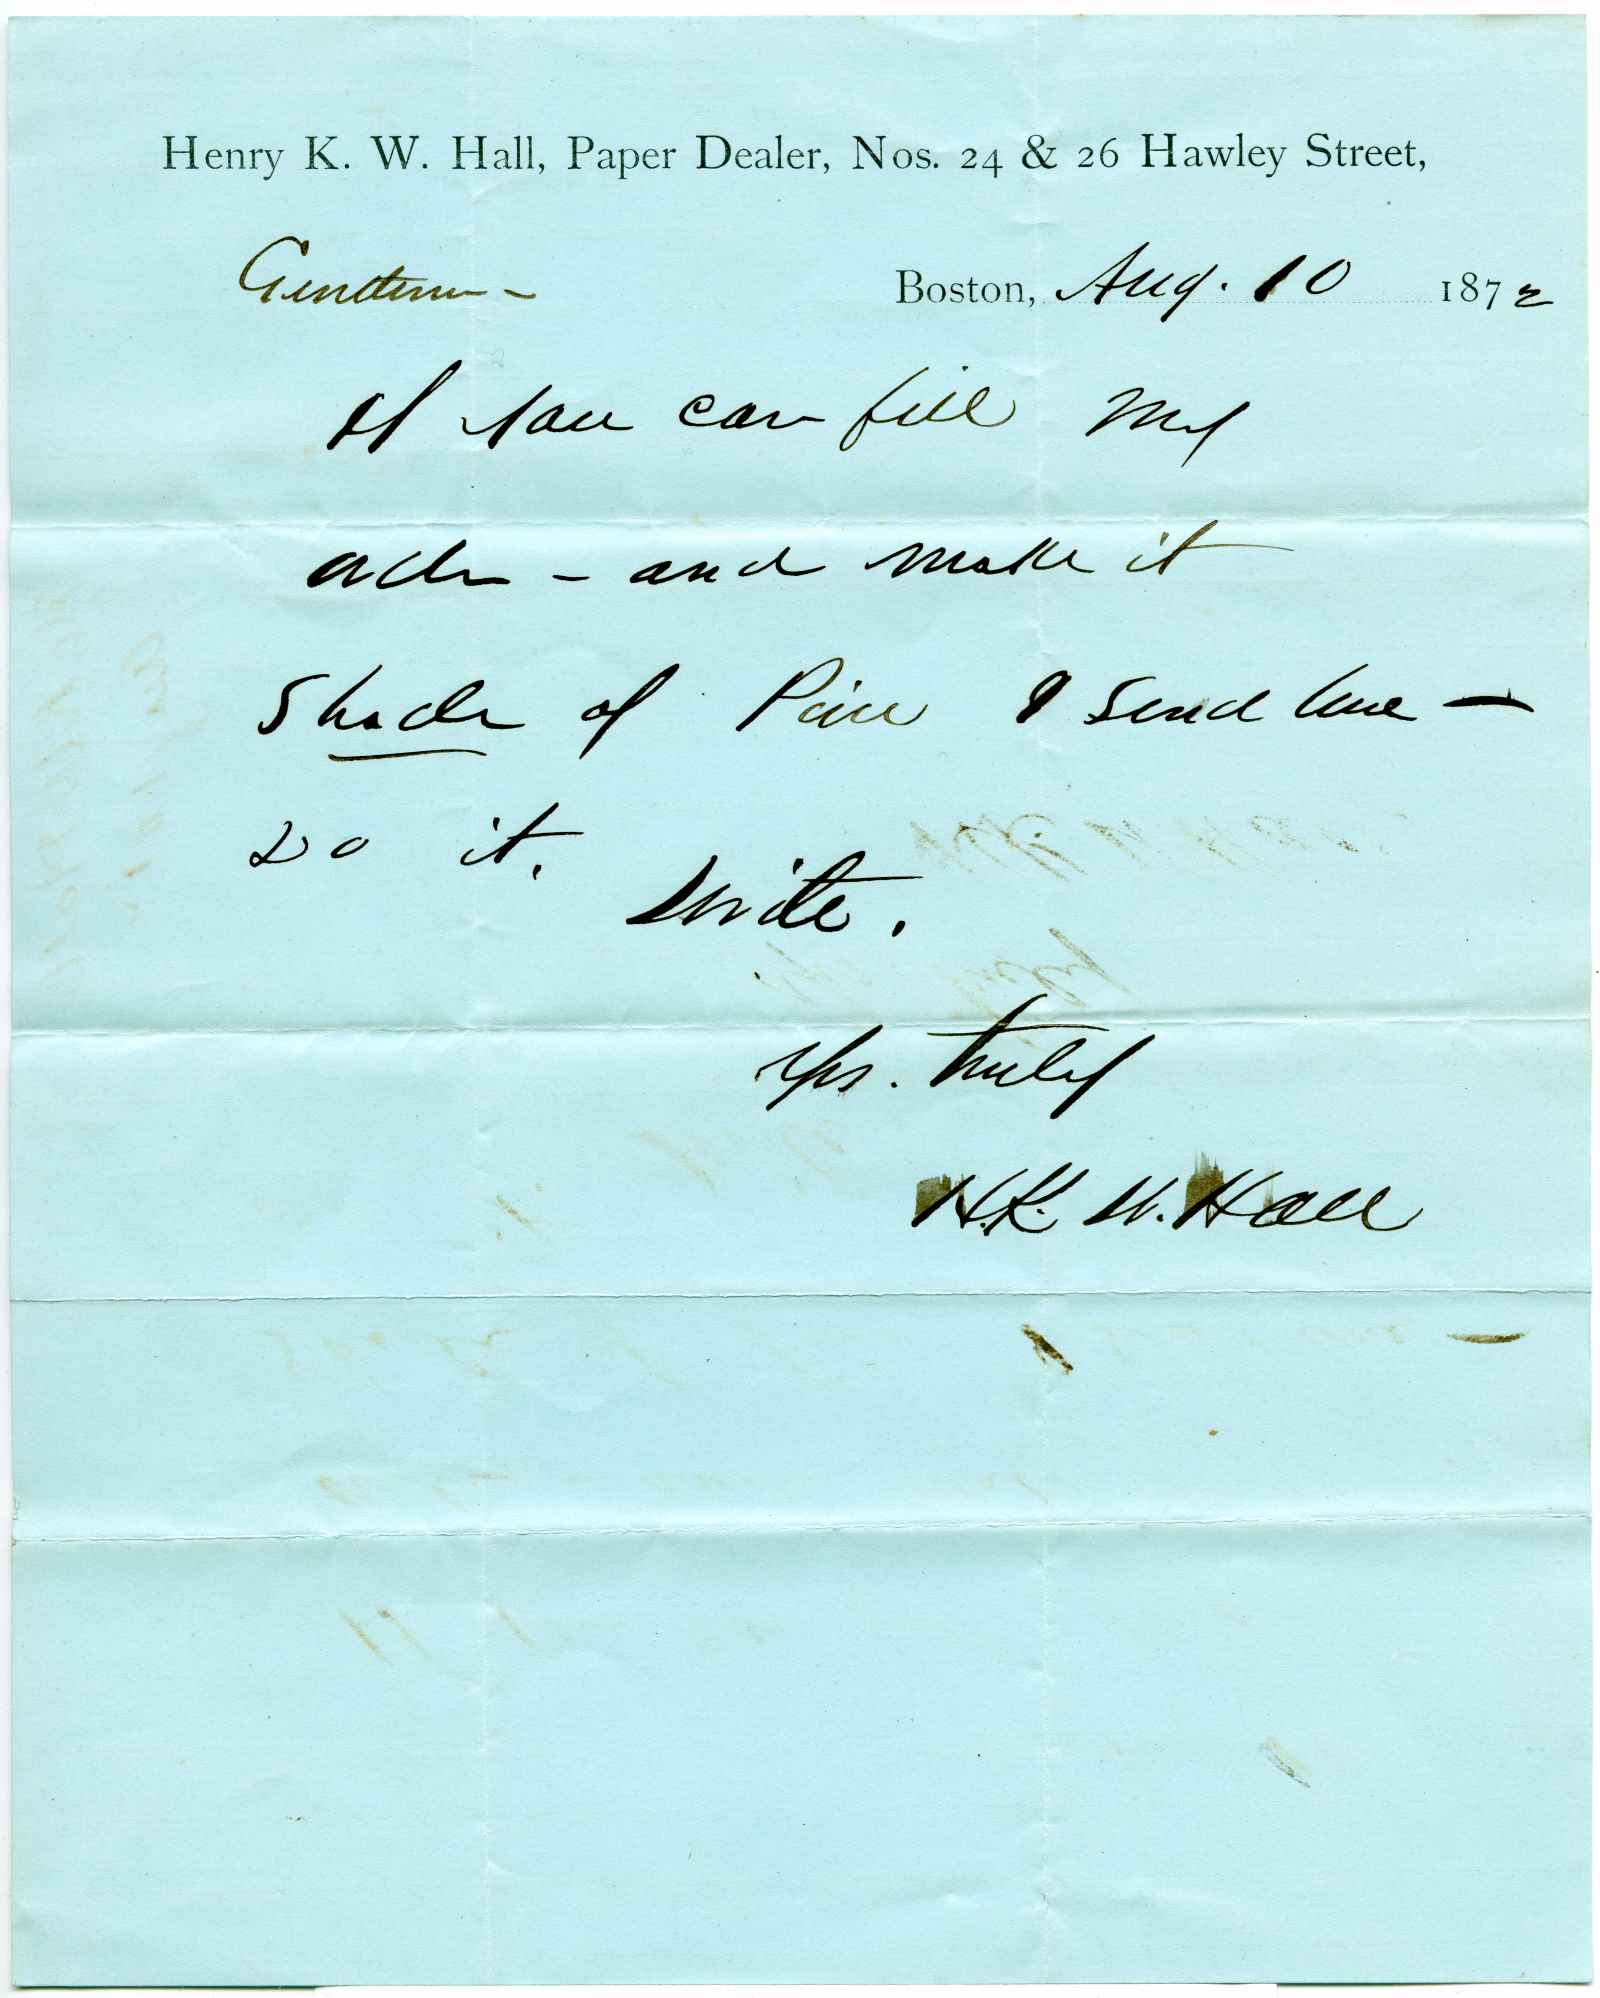 Henry K. W. Hall, Paper Dealer, Nos. 24 & 26 Hawley Street,
Gentlemen - Boston, Aug. 10 1872
If you can fill my
order - and make it
Shade of I send here -
Do it. Write.
Yrs. truly
H. K. W. Hall